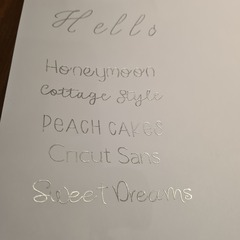 Hello
Honeymoon
Cottage Style
PEACH CAKES
Cricut Sans
Sweet Dreams